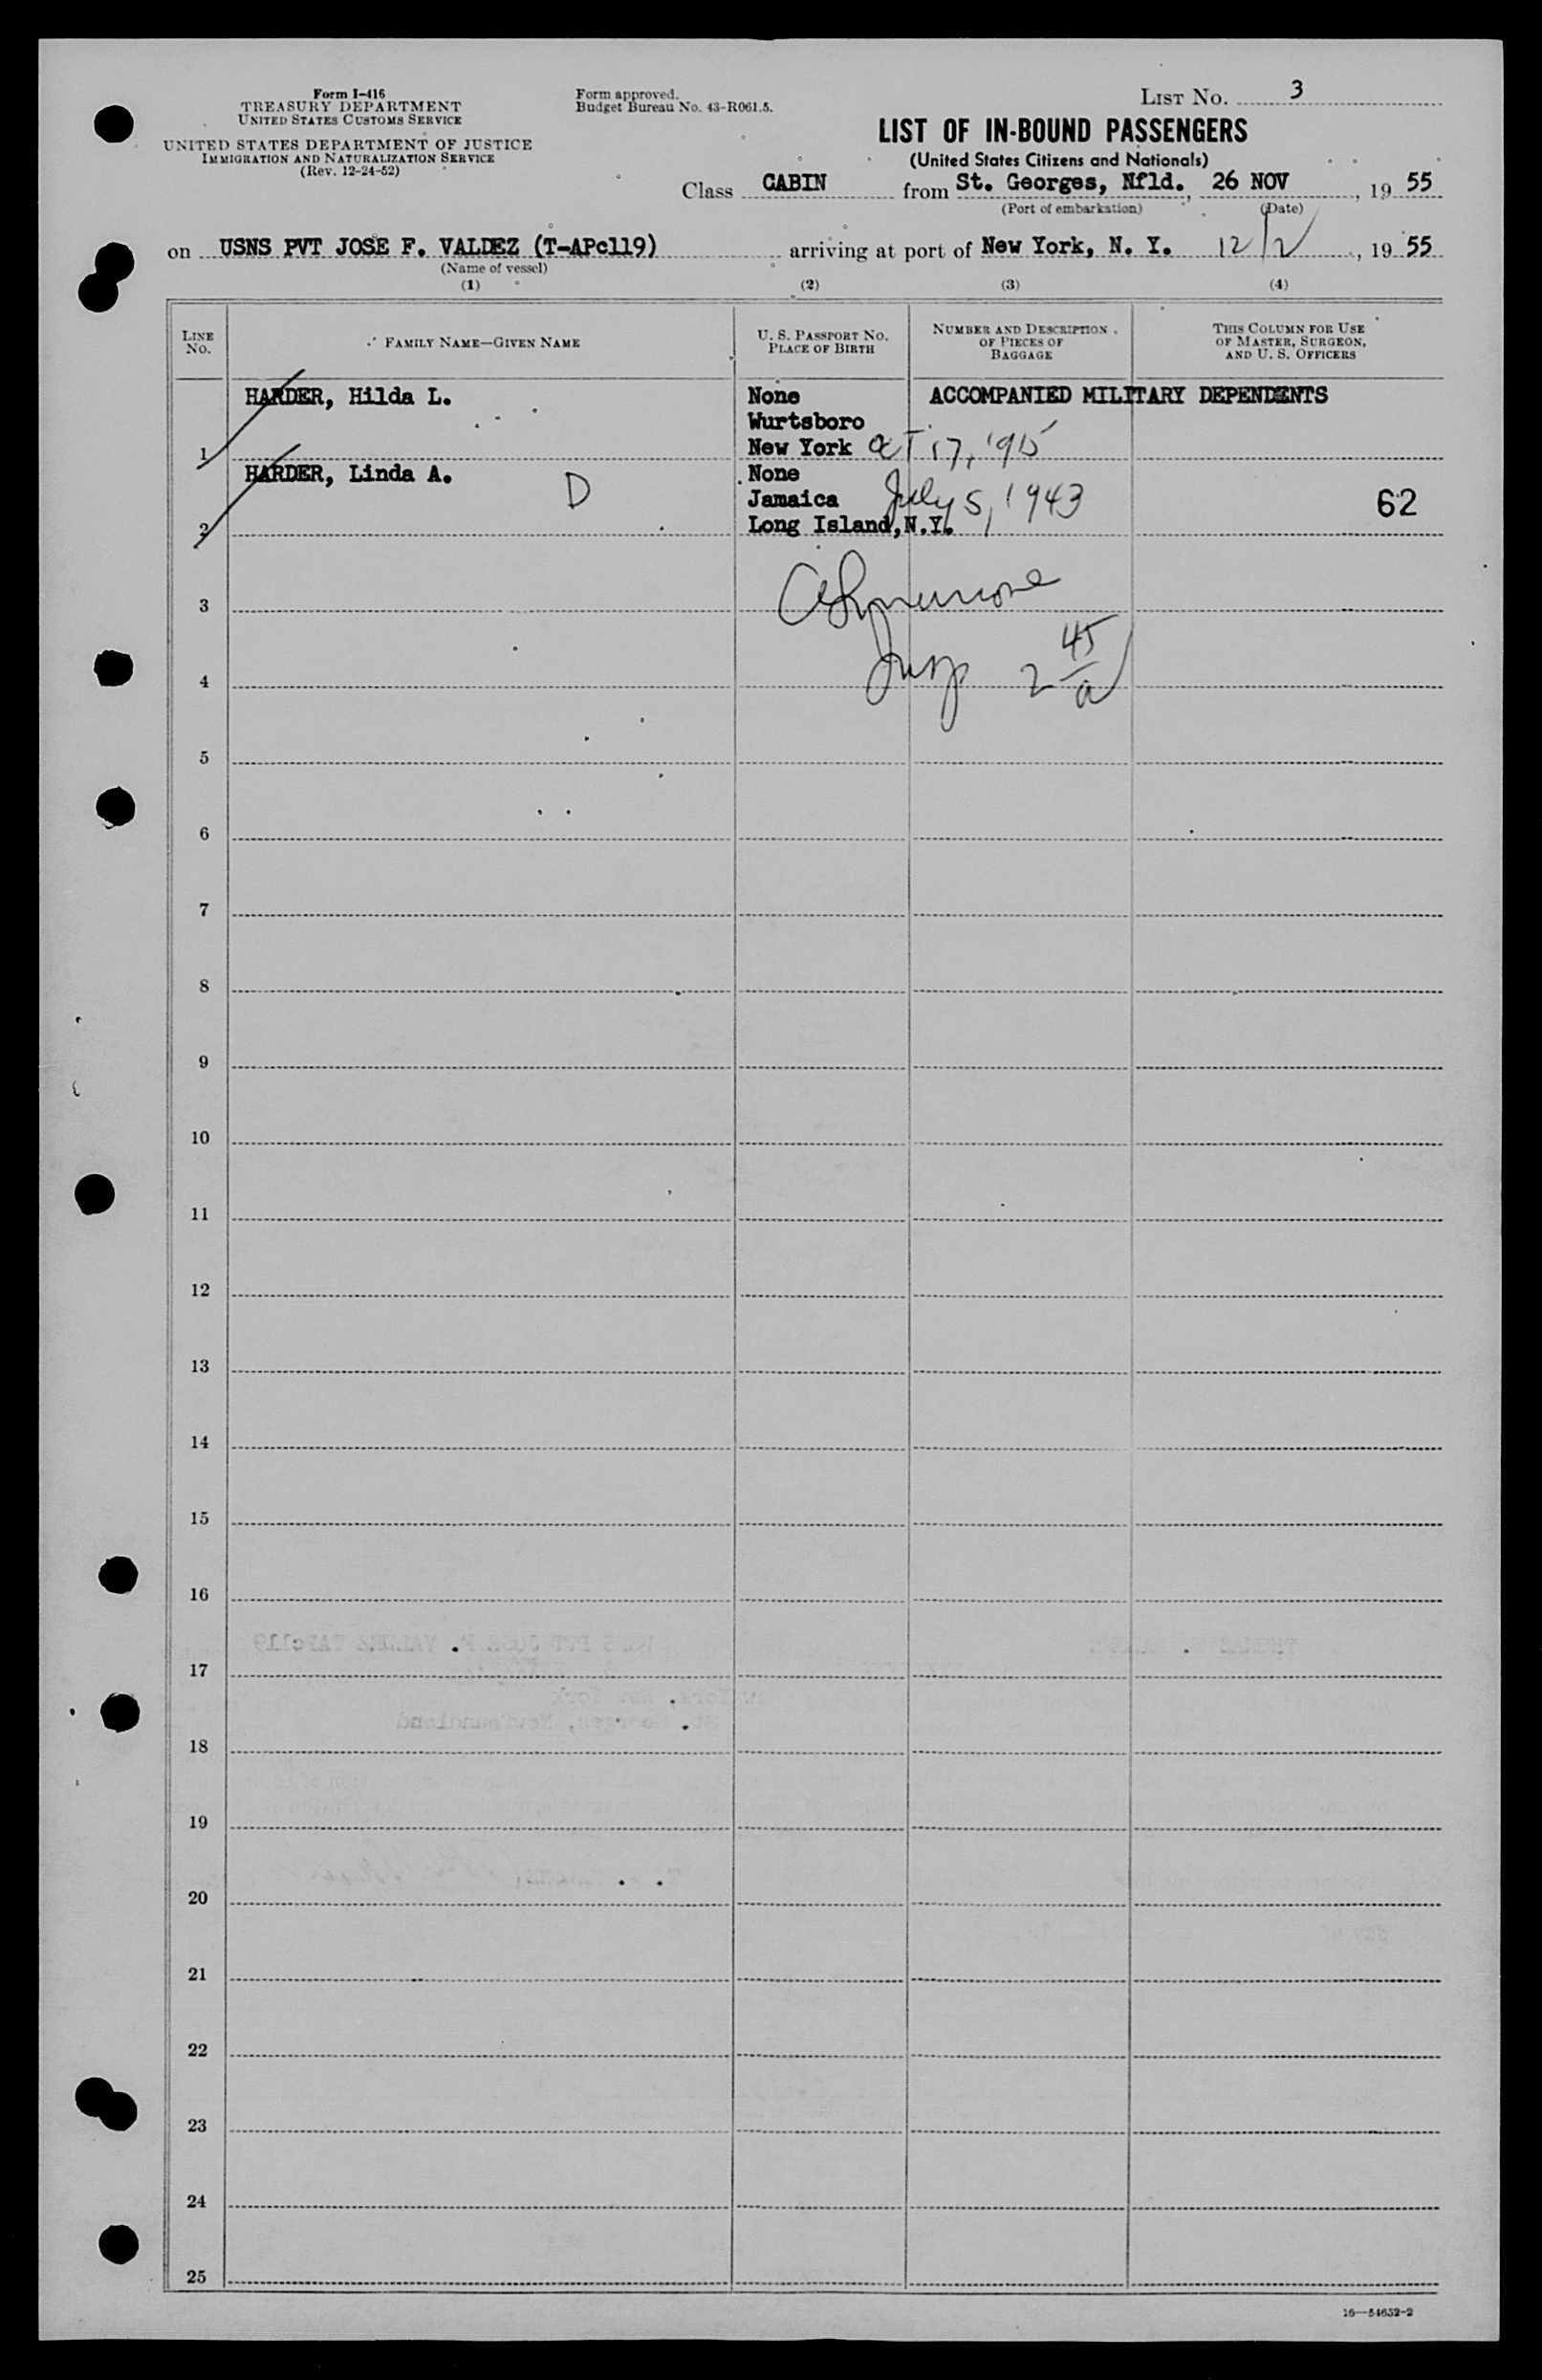 Form I-416
TREASURY DEPARTMENT
UNITED STATES CUSTOMS SERVICE
UNITED STATES DEPARTMENT OF JUSTICE
IMMIGRATION AND NATURALIZATION SERVICE
(Rev. 12-24-52)
Form approved.
Budget Bureau No. 43-R061.5.
LIST No. 3
LIST OF IN-BOUND PASSENGERS
(United States Citizens and Nationals)
Class CABIN from St. Georges, Nfld., 26 NOV, 19 55
(Port of embarkation) (Date)
on USNS PVT JOSE F. VALDEZ (T-APc119) arriving at port of New York, N. Y. 12/2, 19 55
(Name of vessel)
(1) (2) (3) (4)
LINE No.
FAMILY NAME—GIVEN NAME
U. S. PASSPORT NO.
PLACE OF BIRTH
NUMBER AND DESCRIPTION
OF PIECES OF
BAGGAGE
THIS COLUMN FOR USE
OF MASTER, SURGEON,
AND U. S. OFFICERS
HARDER, Hilda L. None ACCOMPANIED MILITARY DEPENDENTS
Wurtsboro
1 New York Oct 17, 1915
HARDER, Linda A. None
D Jamaica July 5, 1943 62
2 Long Island, N.Y.
3
45
4 2 a
5
6
7
8
9
10
11
12
13
14
15
16
17
18
19
20
21
22
23
24
25
16—54652-2